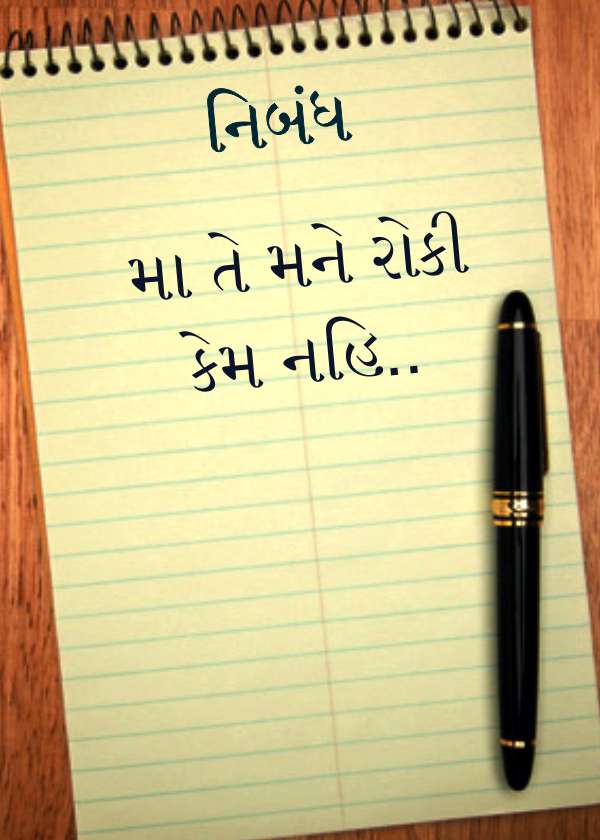 નિબંધ
મા તે મને રોકી
કેમ નહિ..